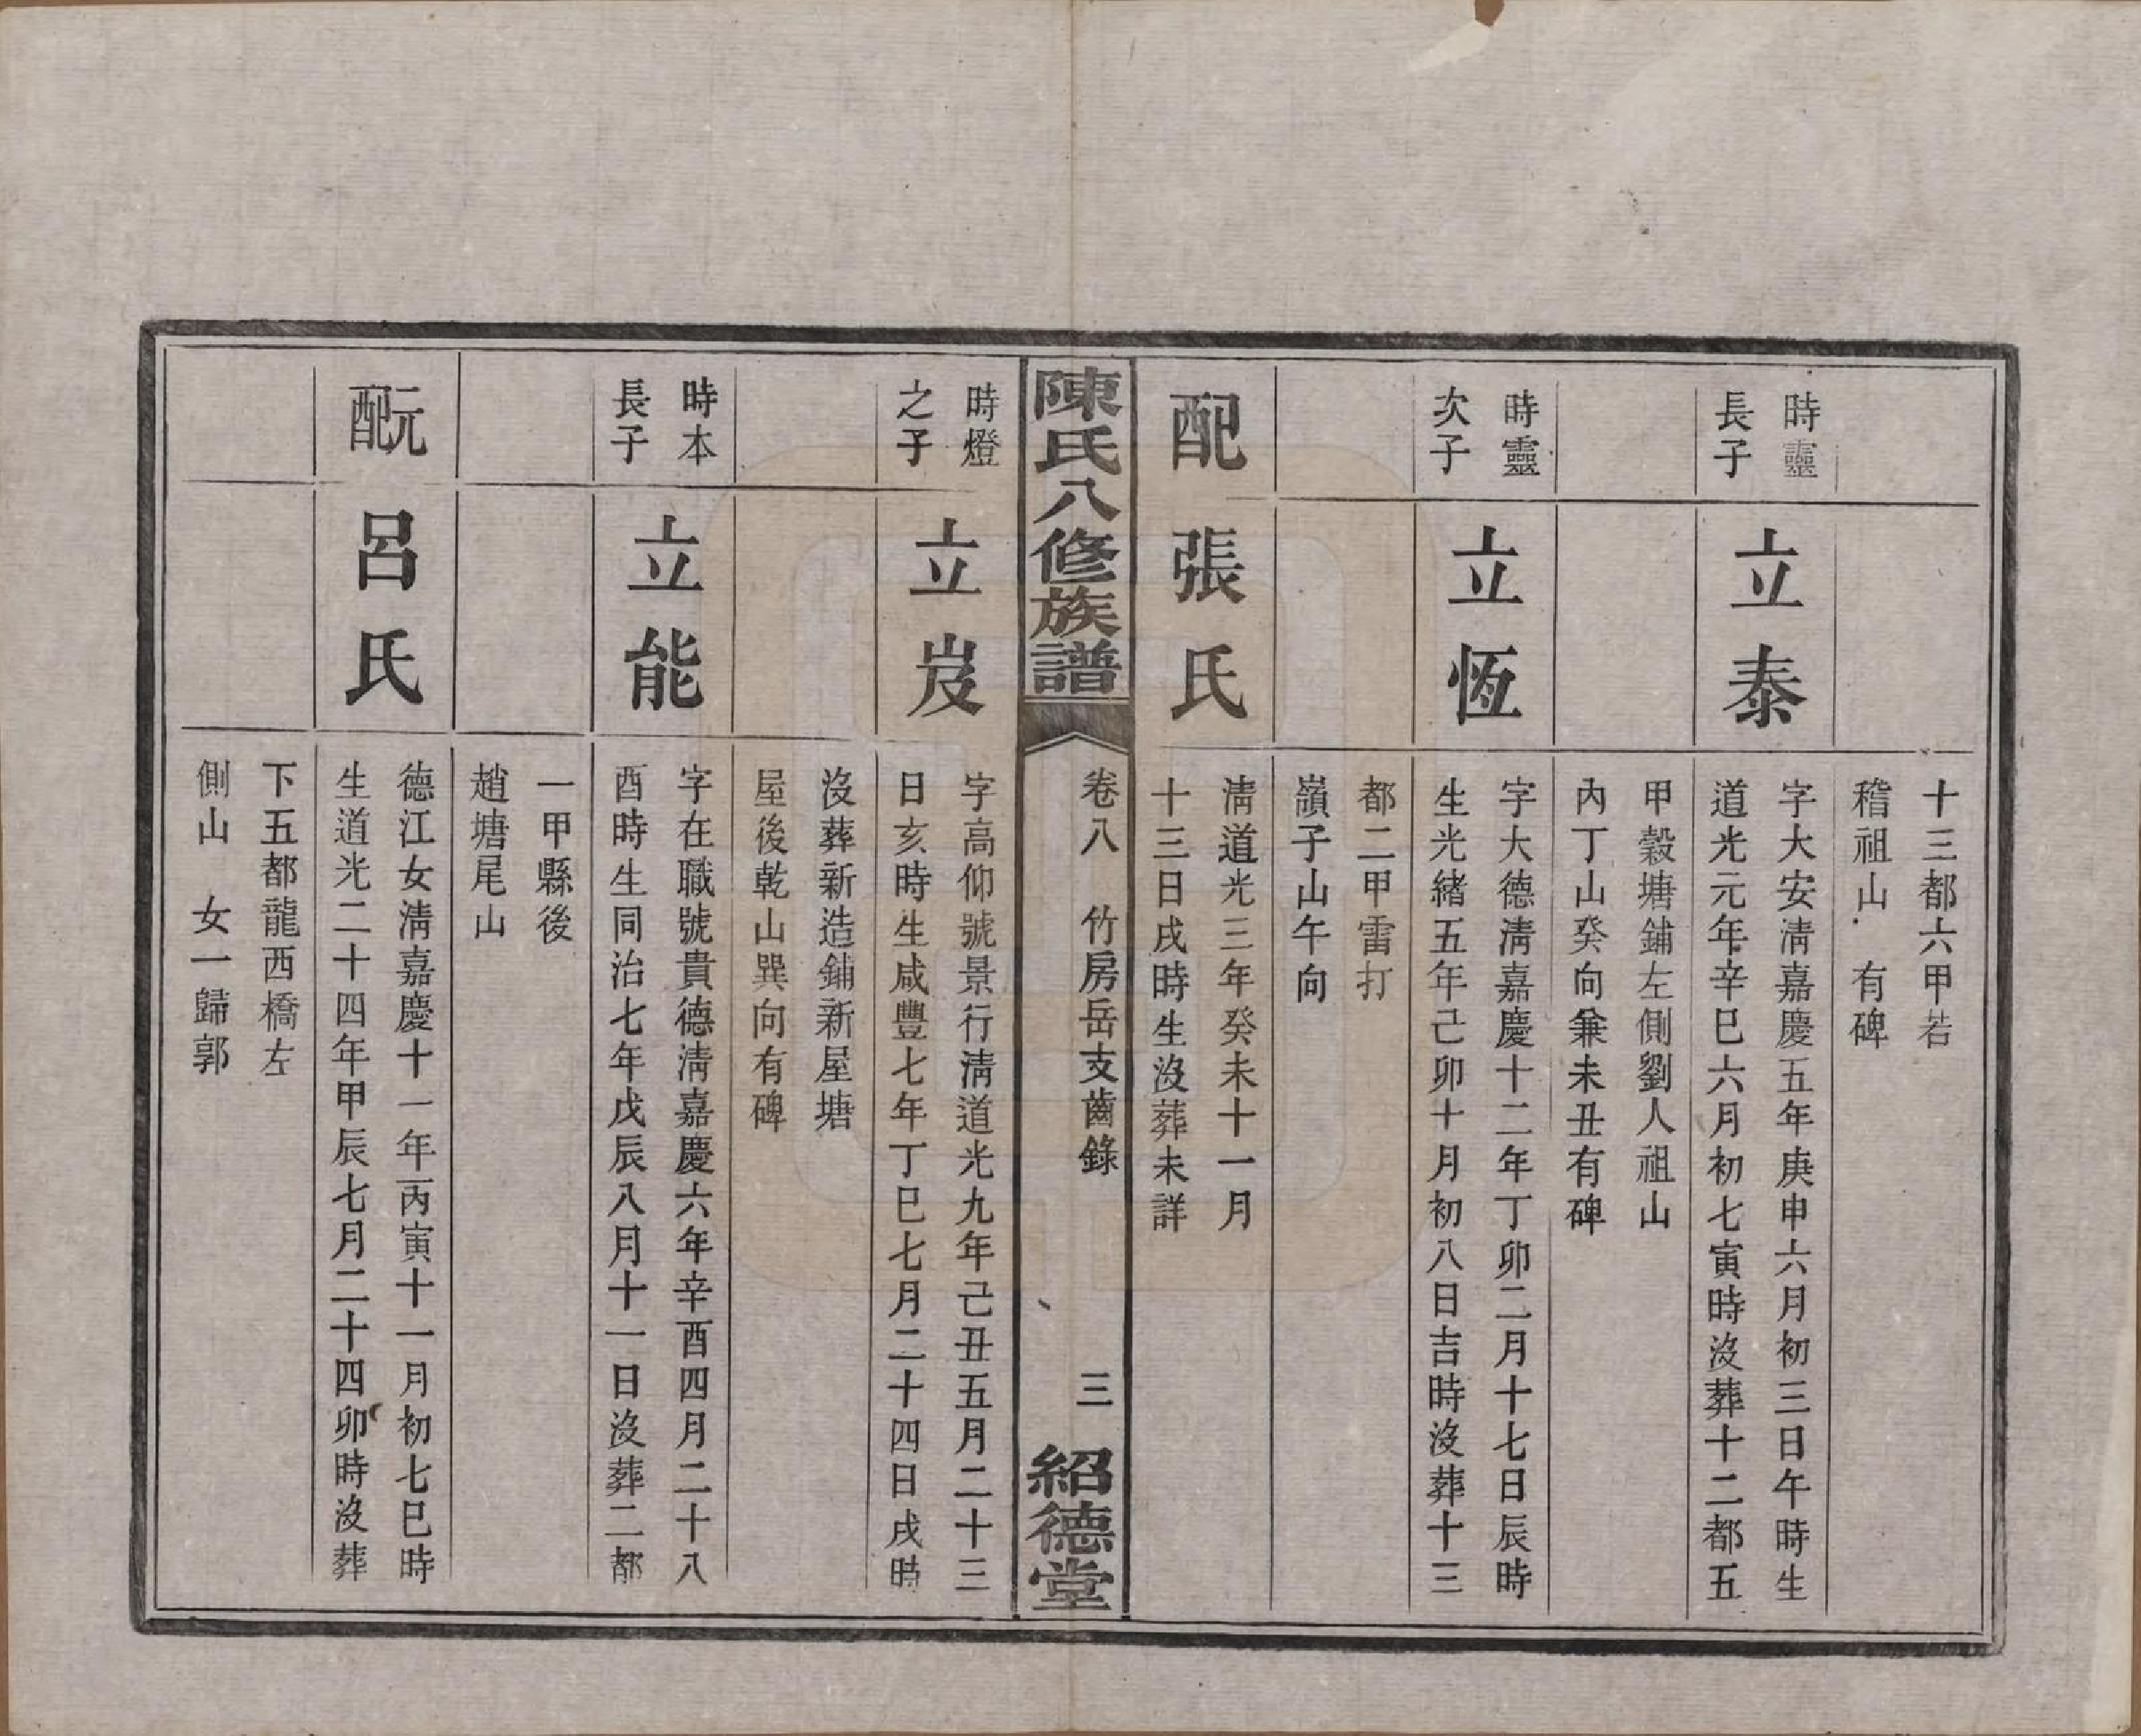 十三都六甲若
稽祖山 有碑
時靈
長子
立泰
字大安淸嘉慶五年庚申六月初三日午時生
道光元年辛巳六月初七寅時沒葬十二都五
甲穀塘鋪左側劉人祖山
內丁山癸向兼未丑有碑
時靈
次子
立恆
字大德淸嘉慶十二年丁卯二月十七日辰時
生光緖五年己卯十月初八日吉時沒葬十三
都二甲雷打
嶺子山午向
配張氏
淸道光三年癸未十一月
十三日戌時生沒葬未詳
陳氏八修族譜
卷八 竹房岳支齒錄
三
紹德堂
時燈
之子
立岌
字高仰號景行淸道光九年己丑五月二十三
日亥時生咸豐七年丁巳七月二十四日戌時
沒葬新造鋪新屋塘
屋後乾山巽向有碑
時本
長子
立能
字在職號貴德淸嘉慶六年辛酉四月二十八
酉時生同治七年戊辰八月十一日沒葬二都
一甲縣後
趙塘尾山
元配
呂氏
德江女淸嘉慶十一年丙寅十一月初七巳時
生道光二十四年甲辰七月二十四卯時沒葬
下五都龍西橋左
側山 女一歸郭